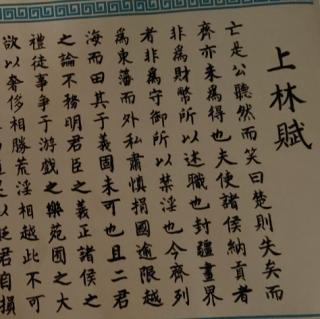 上林賦
亡是公聽然而笑曰楚則失矣而
齊亦未為得也夫使諸侯納貢者
非為財幣所以述職也封疆畫界
者非為守御所以禁淫也今齊列
為東藩而外私肅慎捐國逾限越
海而田其于義固未可也且二君
之論不務明君臣之義正諸侯之
禮徒事爭于游戲之樂苑囿之大
欲以奢侈相勝荒淫相越此不可
以貶君自損